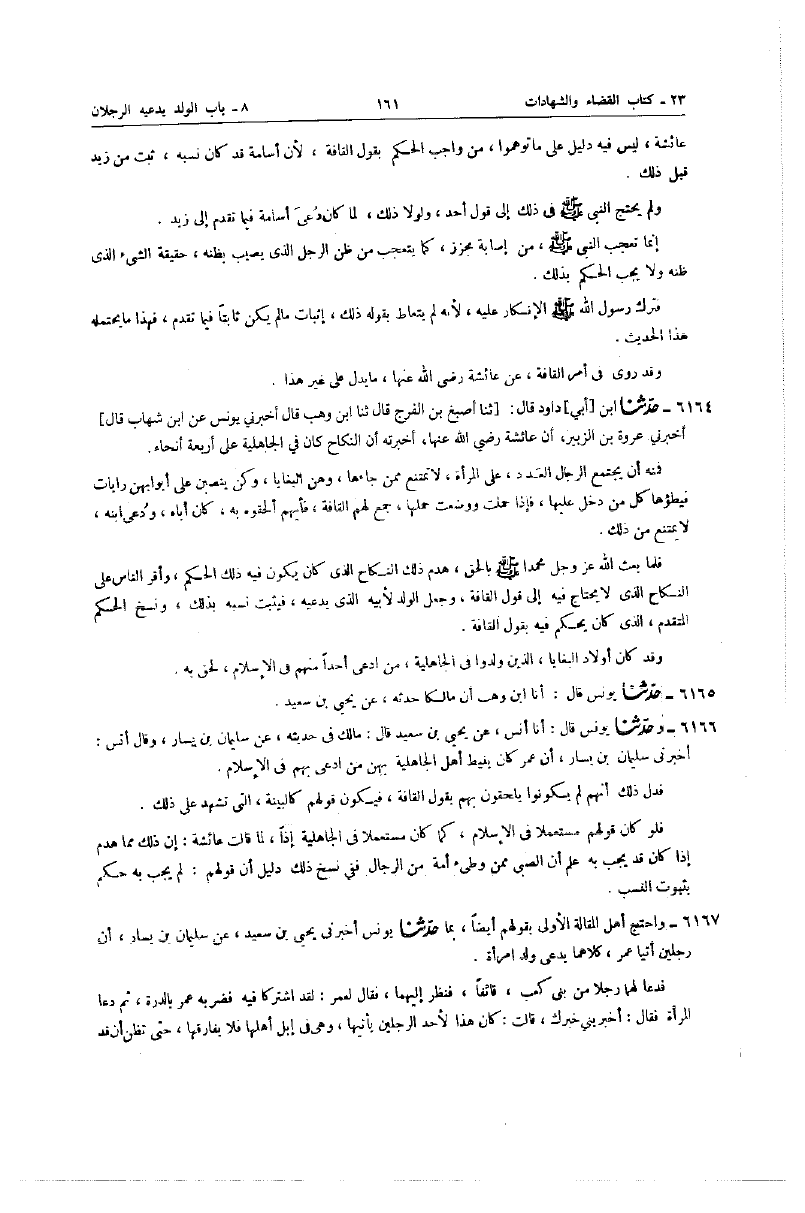 ٢٣ ـ كتاب القضاء والشهادات ١٦١ ٨ ـ باب الولد يدعيه الرجلان
عائشة ، ليس فيه دليل على ماتوهموا ، من واجب الحكم بقول القافة ، لأن أسامة قد كان نسبه ، ثبت من زيد
قبل ذلك .
ولم يحتج النبى ﷺ فى ذلك إلى قول أحد ، ولولا ذلك ، لما كان دُعىَ أسامة فيما تقدم إلى زيد .
إنما تعجب النبى ﷺ ، من إصابة مجزز ، كما يتعجب من ظن الرجل الذى يصيب بظنه ، حقيقة الشىء الذى
ظنه ولا يجب الحكم بذلك .
فترك رسول الله ﷺ الإنكار عليه ، لأنه لم يتعاط بقوله ذلك ، إثبات مالم يكن ثابتاً فيما تقدم ، فهذا مايحتمله
هذا الحديث .
وقد روى فى أمر القافة ، عن عائشة رضى الله عنها ، مايدل على غير هذا .
٦١٦٤ ـ حدّثنا ابن [أبي] داود قال : [ثنا أصبغ بن الفرج قال ثنا ابن وهب قال أخبرني يونس عن ابن شهاب قال]
أخبرني عروة بن الزبير، أن عائشة رضي الله عنها، أخبرته أن النكاح كان في الجاهلية على أربعة أنحاء.
فمنه أن يجتمع الرجال العدد ، على المرأة ، لاتمتنع ممن جاءها ، وهن البغايا ، وكن ينصبن على أبوابهن رايات
فيطؤها كل من دخل عليها ، فإذا حملت ووضعت حملها ، جمع لهم القافة ، فأيهم ألحقوه به ، كان أباه ، ودُعى ابنه ،
لايمتنع من ذلك .
فلما بعث الله عز وجل محمدا ﷺ بالحق ، هدم ذلك النكاح الذى كان يكون فيه ذلك الحكم ، وأقر الناس على
النكاح الذى لايحتاج فيه إلى قول القافة ، وجعل الولد لأبيه الذى يدعيه ، فيثبت نسبه بذلك ، ونسخ الحكم
المتقدم ، الذى كان يحكم فيه بقول القافة .
وقد كان أولاد البغايا ، الذين ولدوا فى الجاهلية ، من ادعى أحداً منهم فى الإسلام ، لحق به .
٦١٦٥ ـ حدّثنا يونس قال : أنا ابن وهب أن مالكا حدثه ، عن يحيى بن سعيد .
٦١٦٦ ـ وحدّثنا يونس قال : أنا أنس ، عن يحيى بن سعيد قال : مالك فى حديثه ، عن سليمان بن يسار ، وقال أنس :
أخبرنى سليمان بن يسار ، أن عمر كان يليط أهل الجاهلية بهن من ادعى بهم فى الإسلام .
فدل ذلك أنهم لم يكونوا يلحقون بهم بقول القافة ، فيكون قولهم كالبينة ، التى تشهد على ذلك .
فلو كان قولهم مستعملا فى الإسلام ، كما كان مستعملا فى الجاهلية إذاً ، لما قالت عائشة : إن ذلك مما هدم
إذا كان قد يجب به علم أن الصبى ممن وطىء أمة من الرجال ففى نسخ ذلك دليل أن قولهم : لم يجب به حكم
بثبوت النسب .
٦١٦٧ ـ واحتج أهل المقالة الأولى بقولهم أيضاً ، بما حدّثنا يونس أخبرنى يحيى بن سعيد ، عن سليمان بن يسار ، أن
رجلين أتيا عمر ، كلاهما يدعى ولد امرأة .
فدعا لهما رجلا من بنى كعب ، قائفاً ، فنظر إليهما ، فقال لعمر : لقد اشتركا فيه فضربه عمر بالدرة ، ثم دعا
المرأة فقال : أخبرينى خبرك ، قالت : كان هذا لأحد الرجلين يأتيها ، وهى فى إبل أهلها فلا يفارقها ، حتى تظن أن قد